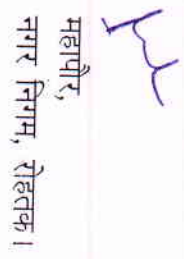 महापौर,
नगर निगम, रोहतक।